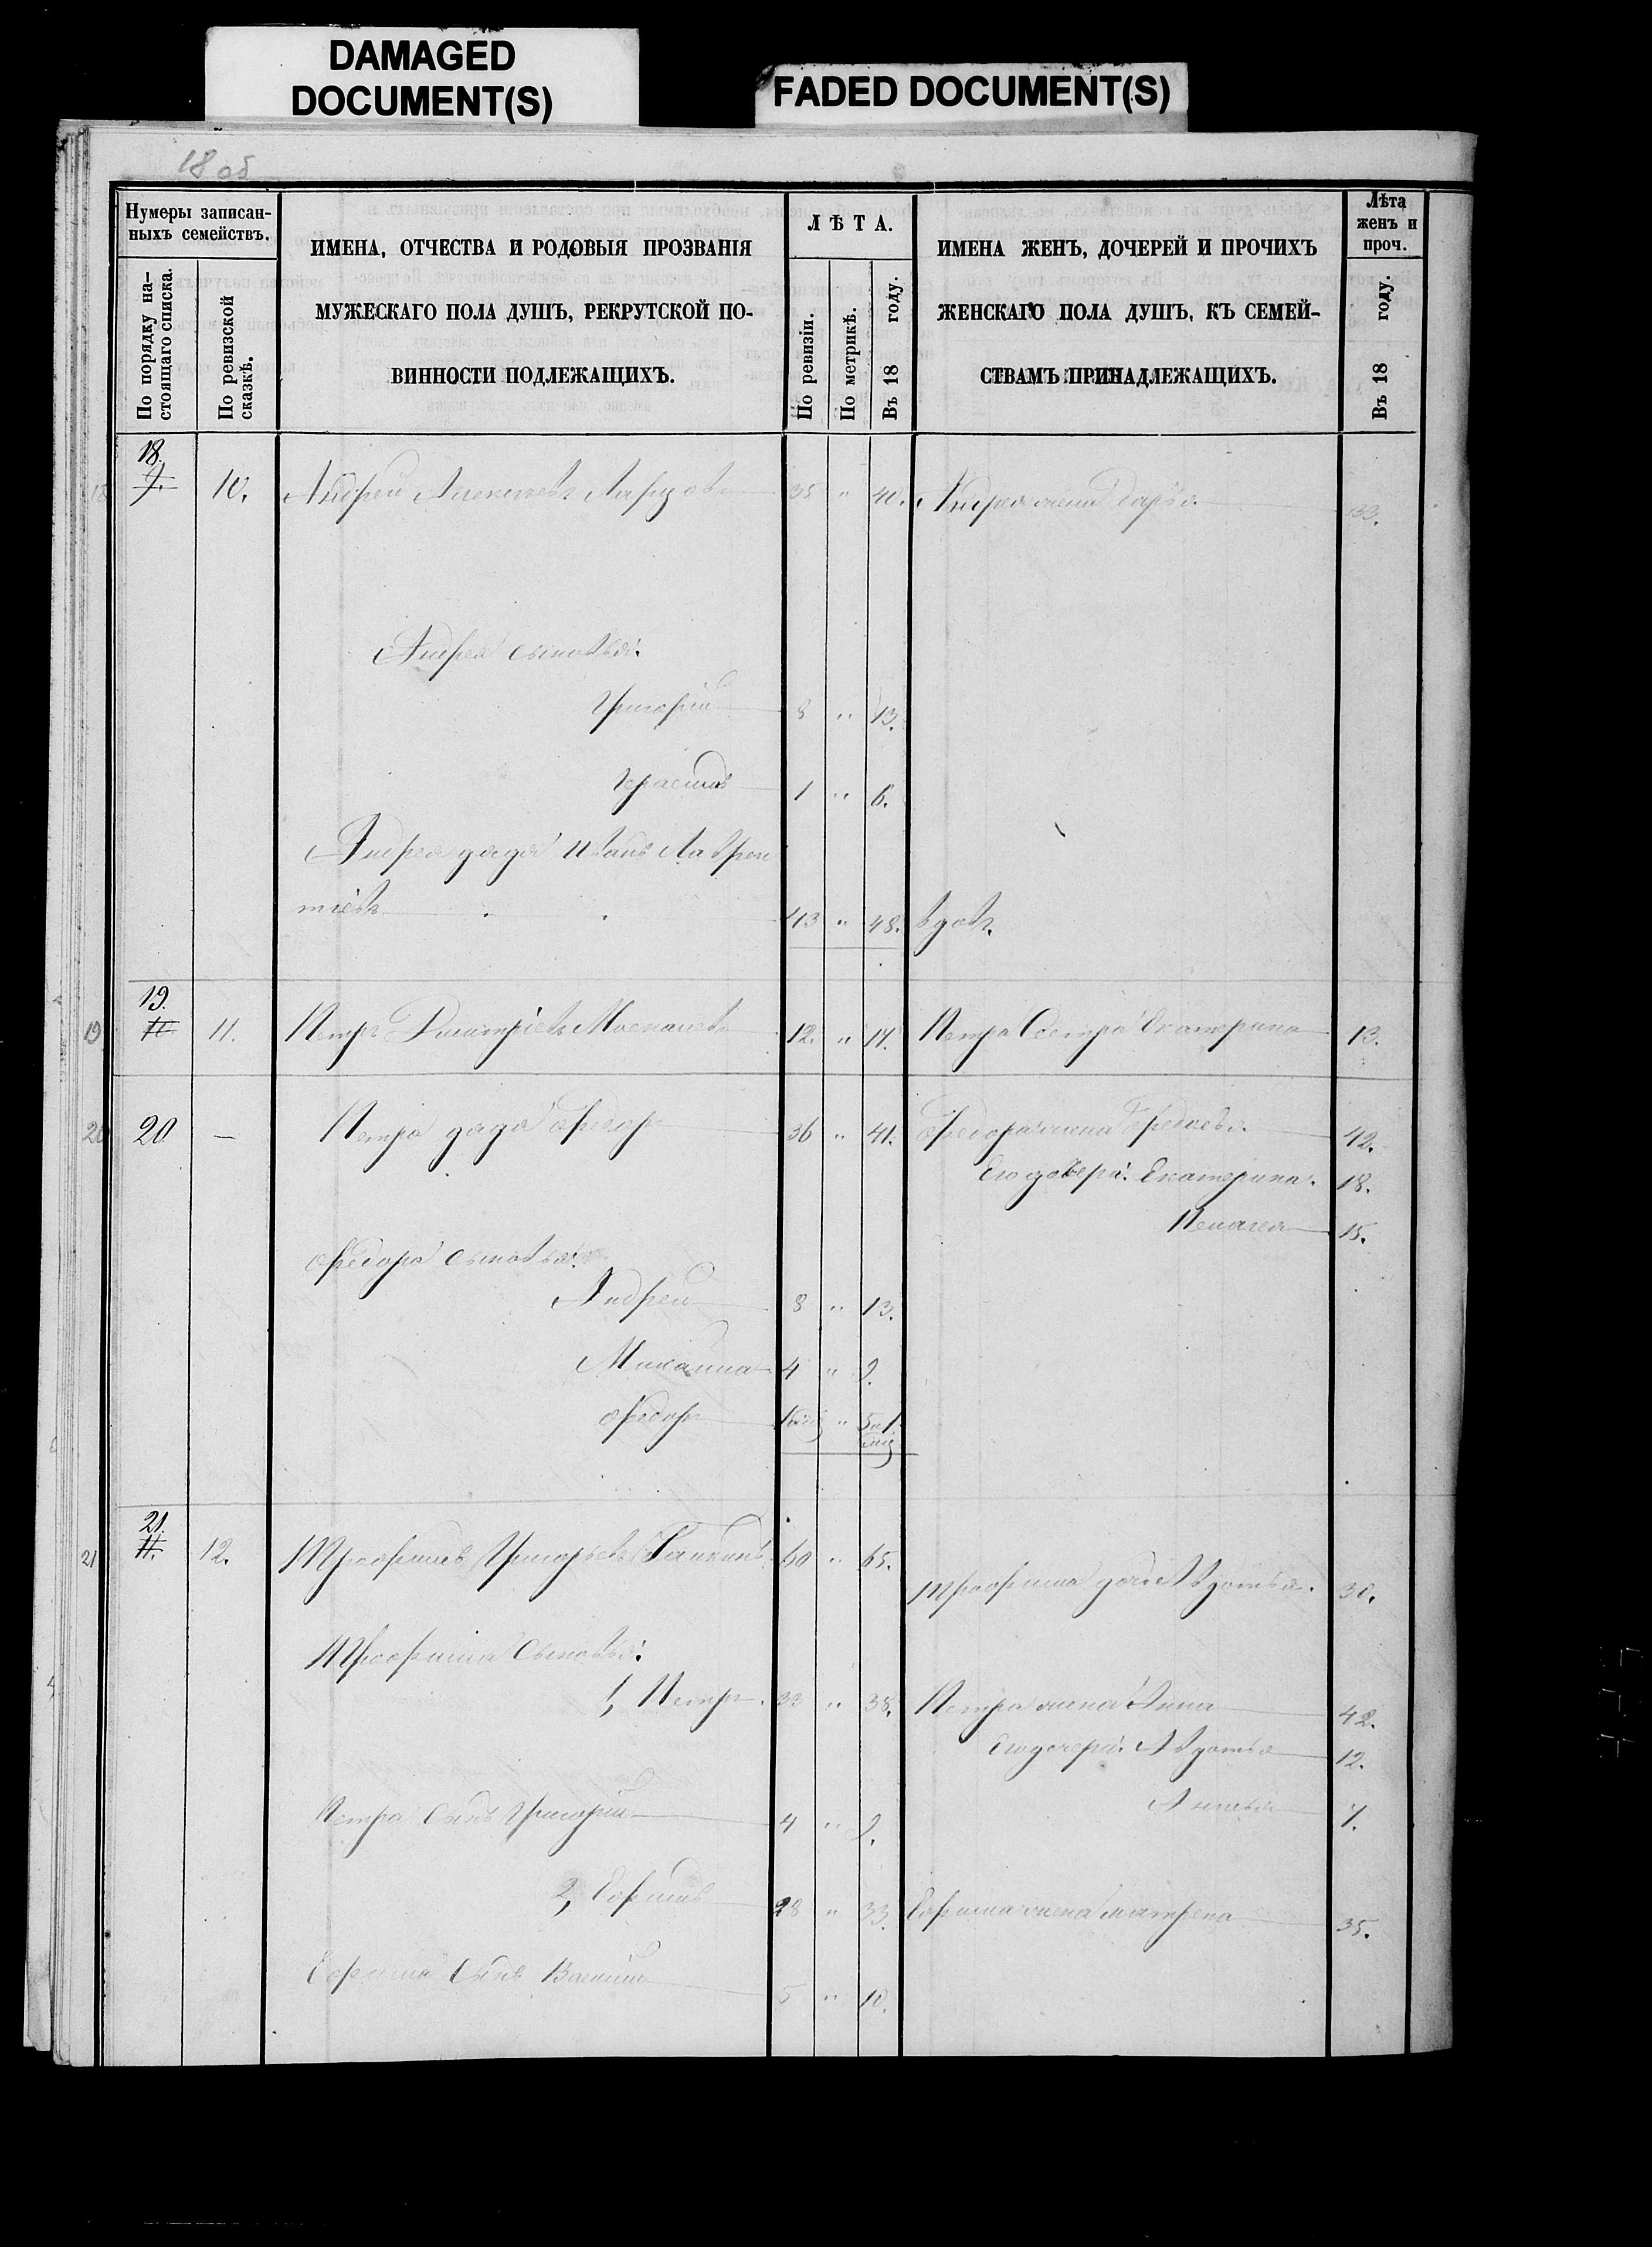 DAMAGED
DOCUMENT(S)
FADED DOCUMENT(S)
18 об
Нумеры записан-
ныхъ семействъ.
По порядку на-
стоящаго списка.
По ревизской
сказкѣ.
ИМЕНА, ОТЧЕСТВА И РОДОВЫЯ ПРОЗВАНІЯ
МУЖЕСКАГО ПОЛА ДУШЪ, РЕКРУТСКОЙ ПО-
ВИННОСТИ ПОДЛЕЖАЩИХЪ.
ЛѢТА.
По ревизіи.
По метрикѣ.
Въ 18 году.
ИМЕНА ЖЕНЪ, ДОЧЕРЕЙ И ПРОЧИХЪ
ЖЕНСКАГО ПОЛА ДУШЪ, КЪ СЕМЕЙ-
СТВАМЪ ПРИНАДЛЕЖАЩИХЪ.
Лѣта
женъ и
проч.
Въ 18 году.
18.
18 9. 10. Андрей Алексѣевъ 35 " 40. Андрея жена Дарья 33.
Андрея сыновья:
Григорій 8 " 13.
Герасимъ 1 " 6.
Андрея дядя Иванъ Лаврен
тіевъ 43 " 48. вдовъ.
19.
19 10 11. Петръ Дмитріевъ 12. " 17. Петра Сестра Екатерина 13.
20 20 — Петра дядя Федоръ 36 " 41. Федора жена 42.
Его дочери: Екатерина. 18.
Пелагея 15.
Федора сыновья:
Андрей 8 " 13.
Михайла 4 " 9.
Федоръ " 5
21.
21 11. 12. Трофимъ Григорьевъ 60 " 65.
Трофима дочь Авдотья. 30.
Трофима Сыновья:
1, Петръ. 33 " 38. Петра жена Анна 42.
Его дочери: Авдотья 12.
7.
Петра Сынъ Григорій 4 " 9.
2, Ефимъ 28 " 33. Ефима жена Матрена 35.
Ефима Сынъ Василій 5 " 10.